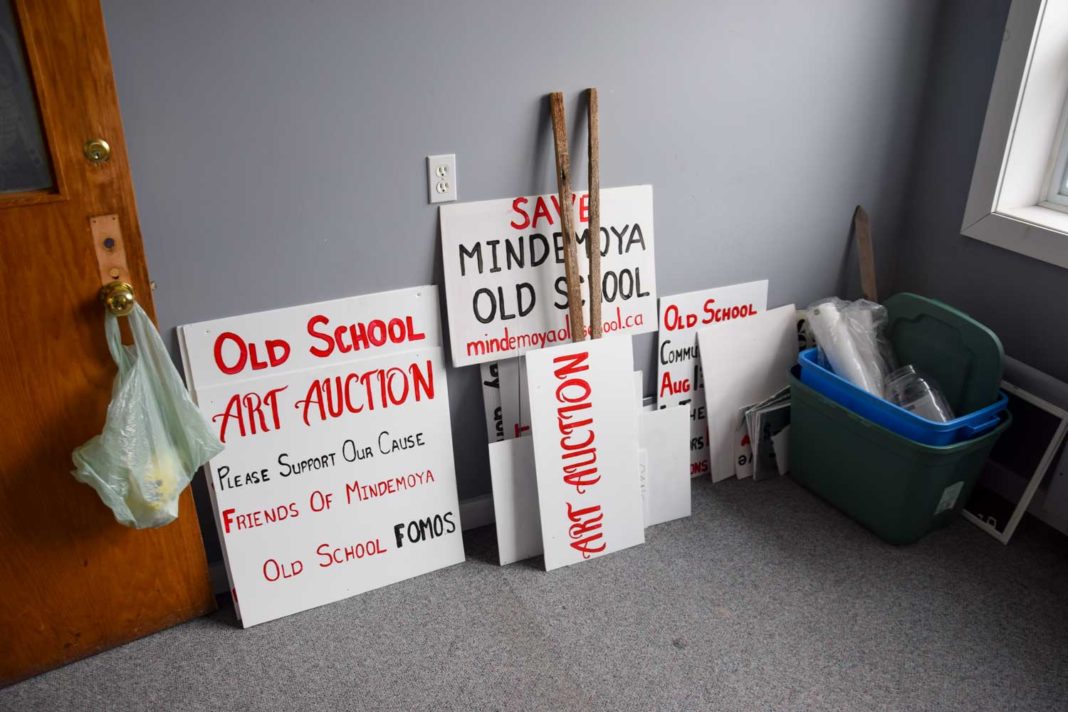 Old School
ART AUCTION
Please Support Our Cause
Friends Of Mindemoya
Old School FOMOS
SAVE
MINDEMOYA
OLD SCHOOL
mindemoyaoldschool.ca
ART AUCTION
Old School
Aug